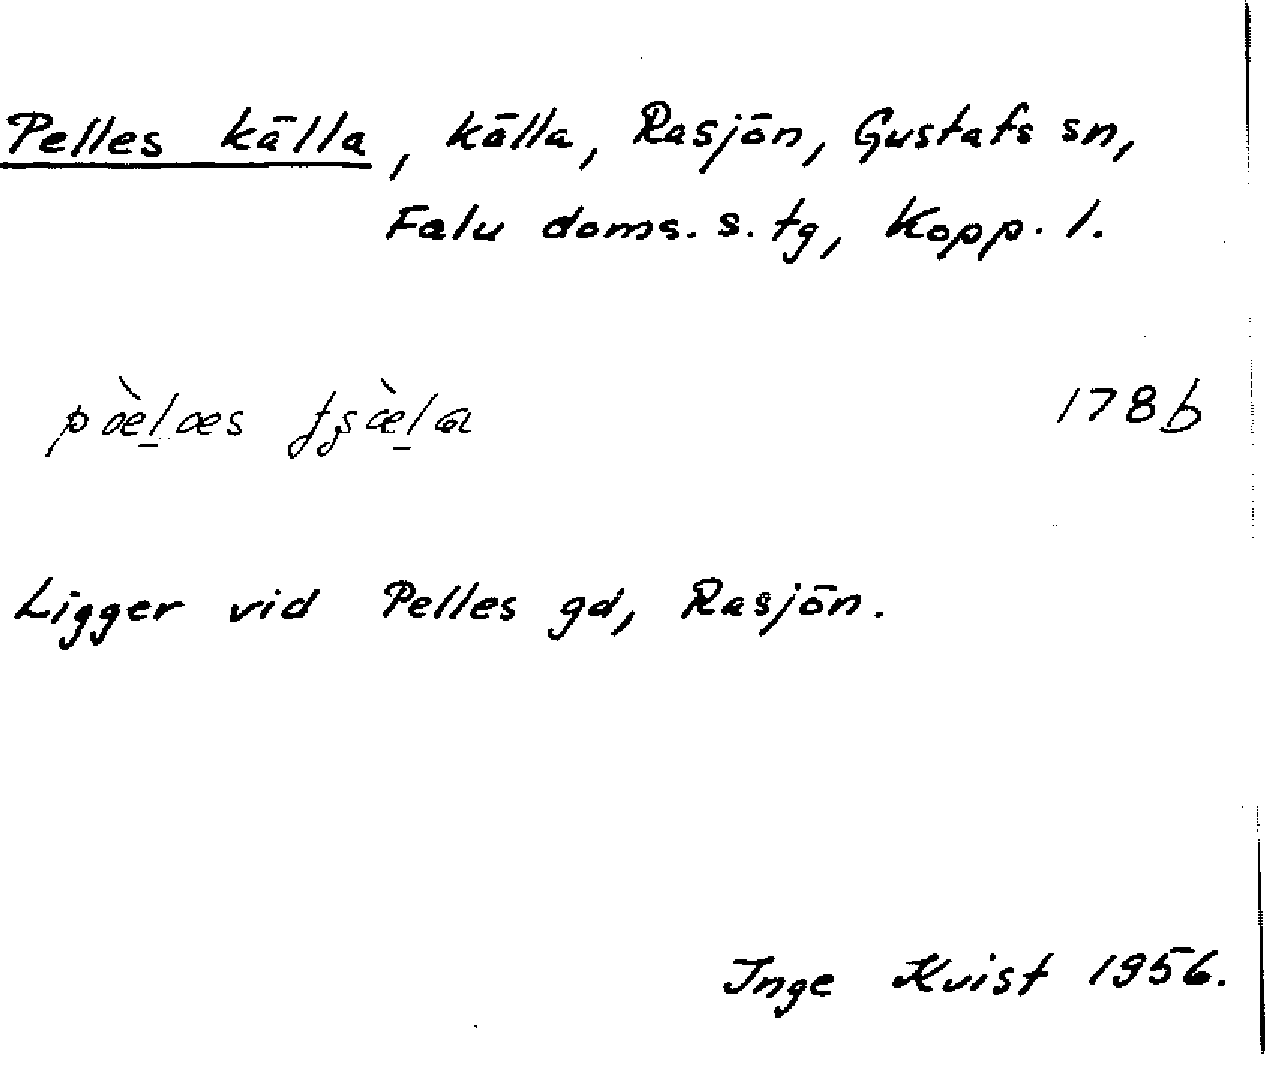 Pelles källa, källa, Rasjön, Gustafs sn,
Falu doms. s. tg, Kopp. l.
pæ̀l̠æs 178b
Ligger vid Pelles gd, Rasjön.
Inge Kvist 1956.